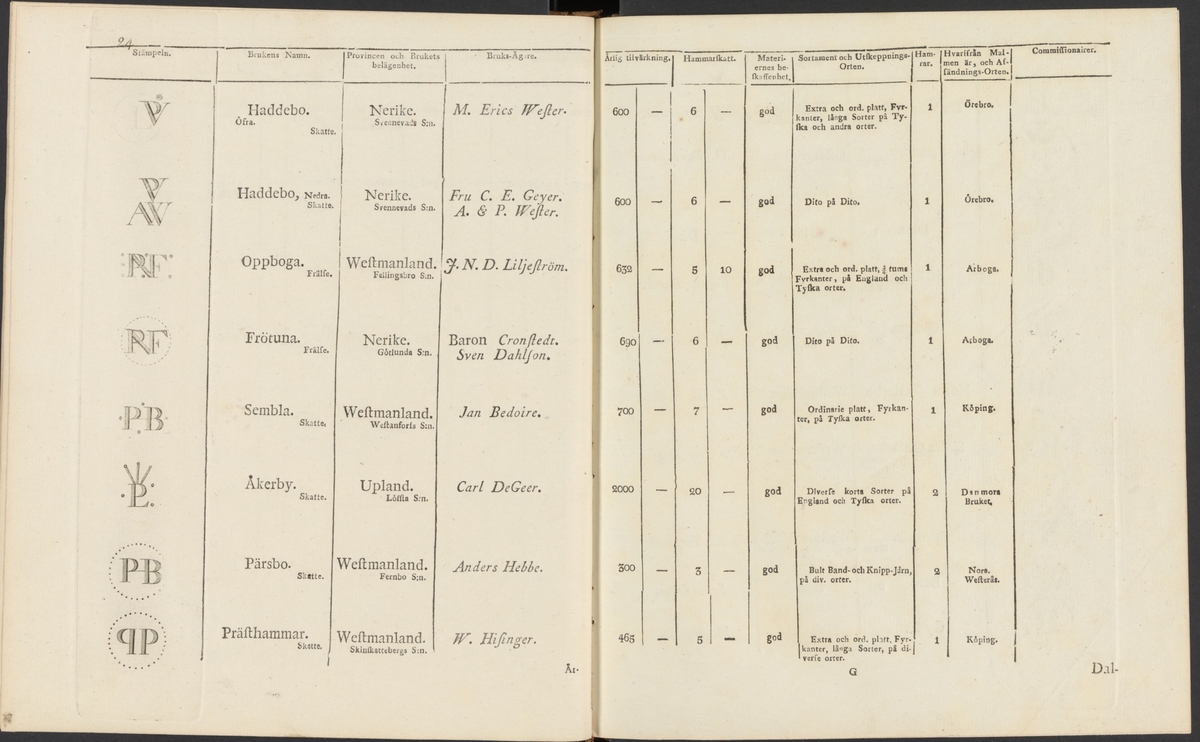 24
Stämpeln.
Brukens Namn.
Provincen och Brukets
belägenhet.
Bruks-Ägare.
Haddebo.
Öfra.
Skatte.
Nerike.
Svennevads S:n.
M. Erics Weſter.
Haddebo, Nedra.
Skatte.
Nerike.
Svennevads S:n.
Fru C. E. Geyer.
A. & P. Weſter.
RF
Oppboga.
Frälſe.
Weſtmanland.
Fellingsbro S:n.
J. N. D. Liljeſtröm.
RF
Frötuna.
Frälſe.
Nerike.
Götlunda S:n.
Baron Cronſtedt.
Sven Dahlſon.
P.B
Sembla.
Skatte.
Weſtmanland.
Weſtanforſs S:n.
Jan Bedoire.
Åkerby.
Skatte.
Upland.
Löſſta S:n.
Carl DeGeer.
PB
Pärsbo.
Skatte.
Weſtmanland.
Fernbo S:n.
Anders Hebbe.
Präſthammar.
Skatte.
Weſtmanland.
Skinſkattebergs S:n.
W. Hiſinger.
År-
Årlig tilvärkning.
Hammarſkatt.
Materi-
ernes be-
ſkaffenhet.
Sortament och Utſkeppnings-
Orten.
Ham-
rar.
Hvarifrån Mal-
men är, och Af-
ſändnings-Orten.
Commiſſionairer.
600 — 6 — god
Extra och ord. platt, Fyr-
kanter, långa Sorter på Ty-
ſka och andra orter.
1
Örebro.
600 — 6 — god Dito på Dito. 1 Örebro.
632 — 5 10 god
Extra och ord. platt, ¾ tums
Fyrkanter, på England och
Tyſka orter.
1
Arboga.
690 — 6 — god Dito på Dito. 1 Arboga.
700 — 7 — god
Ordinarie platt, Fyrkan-
ter, på Tyſka orter.
1
Köping.
2000 — 20 — god
Diverſe korta Sorter på
England och Tyſka orter.
2
Danmora
Bruket.
300 — 3 — god
Bult Band- och Knipp-Järn,
på div. orter.
2
Nora.
Weſterås.
465 — 5 — god
Extra och ord. platt, Fyr-
kanter, långa Sorter, på di-
verſe orter.
1
Köping.
G
Dal-